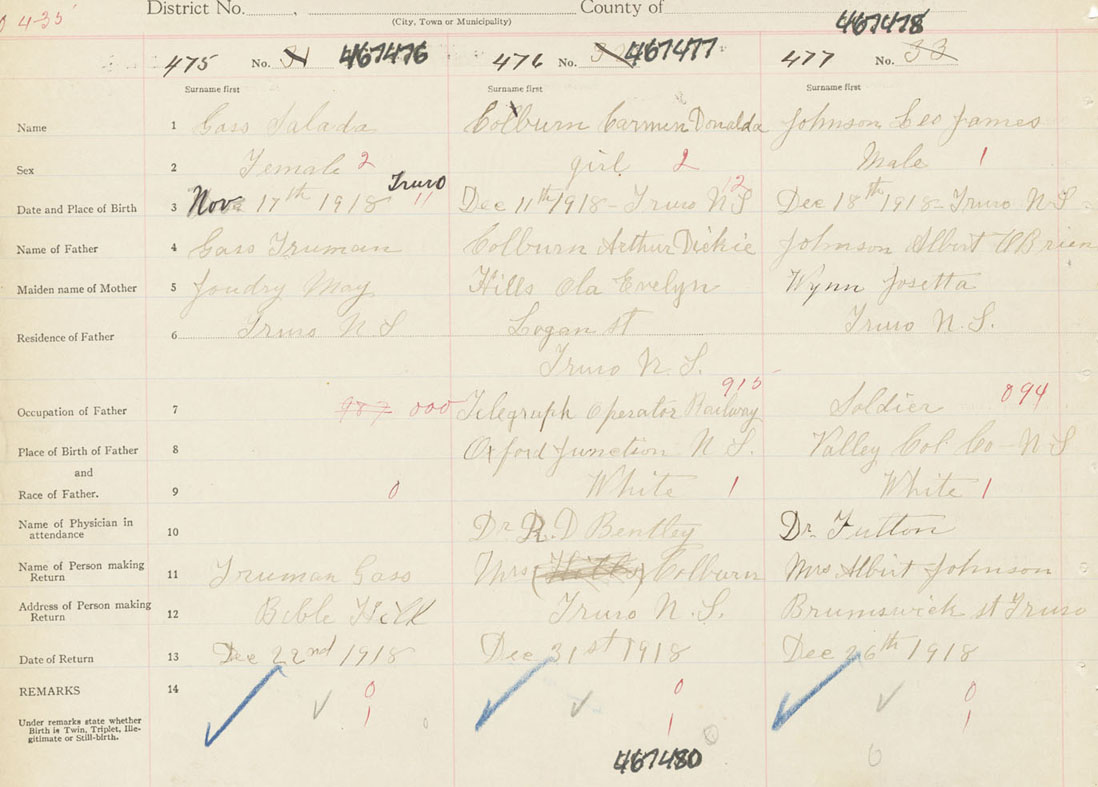 District No. County of
(City, Town or Municipality)
4-35
475 No. 31 467476 476 No. 32 467477 477 No. 33 467478
Surname first Surname first Surname first
Name 1 Gass Salada Colburn Carmen Donalda Johnson Leo James
Sex 2 Female 2 girl 2 Male 1
Truro 12
Date and Place of Birth 3 Nov 17th 1918 11 Dec 11th 1918 - Truro N S Dec 18th 1918 - Truro N S -
Name of Father 4 Gass Truman Colburn Arthur Dickie Johnson Albert OBrien
Maiden name of Mother 5 Joudry May Hills Ola Evelyn Wynn Josetta
Residence of Father 6 Truro N S Logan st Truro N. S.
Truro N. S.
915
Occupation of Father 7 987 000 Telegraph Operator Railway Soldier 094
Place of Birth of Father 8 Oxford Junction N. S. Valley Col Co - N S
and
Race of Father. 9 0 White 1 White 1
Name of Physician in
attendance 10 Dr R. D Bentley Dr. Futton
Name of Person making
Return 11 Truman Gass Mrs (Hills) Colburn Mrs Albirt Johnson
Address of Person making
Return 12 Bible Hill Truro N. S. Brumswick st Truro
Date of Return 13 Dec 22nd 1918 Dec 31st 1918 Dec 26th 1918
REMARKS 14 0 0 0
Under remarks state whether
Birth is Twin, Triplet, Ille-
gitimate or Still-birth.
1 0 1 0 1
467480 0